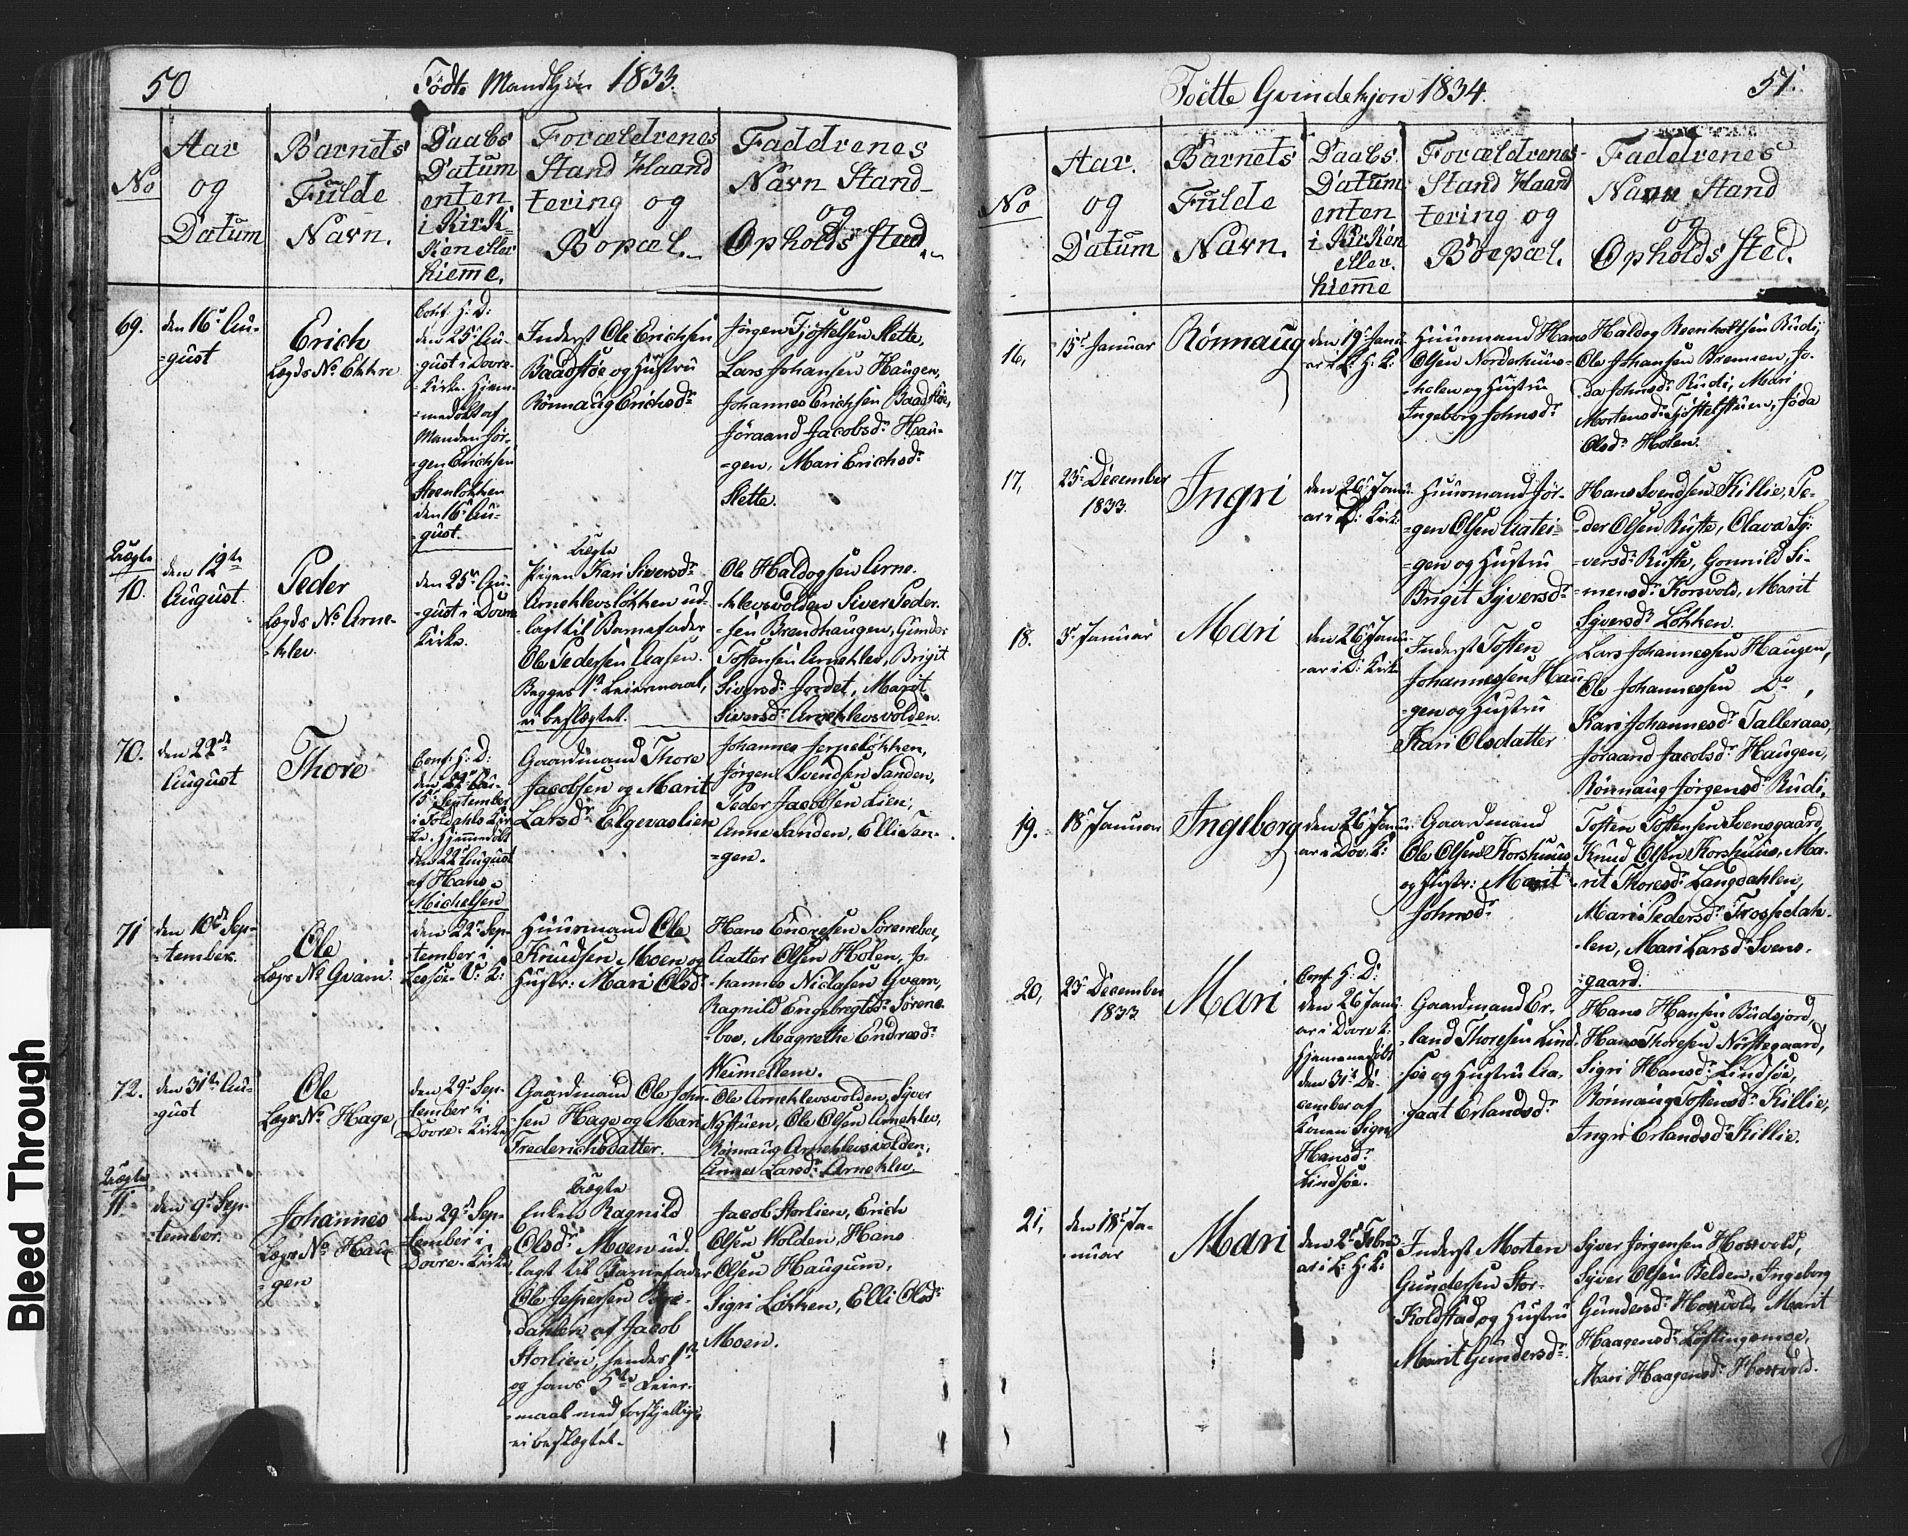 50
Födte Mandkjön 1833.
No
Aar
og
Datum
Barnets
Fulde
Navn.
Daabs
Datum
enten
i Kirk-
ken eller
hieme.
Forældrenes
Stand Haand
tering og
Bopæl.
Faddrenes
Navn Stand
og
Opholds Sted.
69.
den 16de Au-
-gust
Erich
Legds No Ekkre
Conf. H: D:
den 25de Au-
-gust i Dovre-
-Kirke. Hjem-
-medöbt af
Manden Jör-
-gen Erichsen
Steenlökken
den 16de Au-
-gust.
Inderst Ole Erichsen
Baadstöe og Hustru
Rönnaug Erichsdr
Jörgen Tjöstelsen Slette,
Lars Johansen Haugen,
Johannes Erichsen Baadstöe,
Jöraand Jacobsdr Hau-
-gen, Mari Erichsdr
Slette.
Uægte
10.
den 12te
August.
Peder
Legds No Arne-
-klev.
den 25de Au-
-gust i Dovre
Kirke.
Uægte
Pigen Kari Siversdr
Arneklevslökken ud-
-lagt til Barnefader
Ole Pedersen Aasen.
Begges 1ste Leiermaal,
ei beslægtet.
Ole Haldogsen Arne-
-klevsvolden Siver Peder-
-sen Brendhaugen, Gunder
Tostensen Arneklev, Brigit
Siversdr Jordet, Marit
Siversdr Arneklevsvolden.
70.
den 22de
August
Thore
Conf. H: D:
den
15de September
i Foldahls Kir-
-ke. Hjemmedöbt
den 22de August
af Hans
Michelsen
Gaardmand Thore
Jacobsen og Marit
Larsdr Elgevaslien
Johannes Jerpelökken,
Jörgen Svendsen Sanden,
Peder Jacobsen Lien,
Anne Sanden, Elli Tan-
-gen.
71
den 10de Sep-
-tember.
Ole
Legs No Gvam.
den 22de Sep-
-tember i
Lesjöe U: K:
Huusmand Ole
Knudsen Moen og
Hustr: Mari Olsdr
Hans Endresen Söreneboe,
Gatter Olsen Holen, Jo-
-hannes Niclasen Gvam,
Ragnild Engebregtsdr Sörene-
-boe, Magrethe Endresdr
Neimellem.
72.
den 31te Au-
-gust
Ole
Legs No Hage,
den 29de Sep-
-tember i
Dovre-Kirke
Gaardmand Ole John-
-sen Hage og Mari
Frederichsdatter.
Ole Arneklevsvolden, Syver
Nystuen, Ole Olsen Arneklev,
Rönnaug Arneklevsvolden,
Anne Larsdr Arneklev.
Uægte
11.
den 9de Sep-
-tember.
Johannes
Legs No Hau-
-gen
den 29de Sep-
-tember i
Dovre-Kirke
Uægte
Enken Ragnild
Olsdr Moen ud-
-lagt til Barnefader
Ole Jespersen
-dahlen af Jacob
Storlien, hendes 1ste
og hans 5te Leier-
-maal med forskjellige,
ei beslægtet.
Jacob Storlien, Erich
Olsen Volden, Hans
Olsen Haugum,
Sigri Lökken, Elli Olsdr
Moen.
Födte Qvindekjon 1834.
51.
No
Aar.
og
Datum
Barnets
Fulde
Navn.
Daabs
Datum
enten
i Kirken
eller.
hieme
Forældrenes
Stand Haand
tering og
Boepæl.
Faddrenes
Navn Stand
og
Opholds Sted.
16,
15de Januar
Rönnaug
den 19de Janu-
-ar i L: H: K:
Huusmand Hans
Olsen Norderhuus-
-holen og Hustru
Ingeborg Johnsdr
Haldog Reenholtsen Rudi,
Ole Johansen Bremsen, Jo-
-da Johnsdr Rudi, Mari
Mortensdr Tjöstelstuen, Jöda
Olsdr Holen.
17,
23de December
1833.
Ingri
den 26de Janu-
-ar i D: Kirke
Huusmand Jör-
-gen Olsen
-gen og Hustru
Brigit Syversdr
Hans Svendsen Killie, Pe-
-der Olsen Ruste, Olava Sy-
-versdr Ruste, Gonnild Si-
-mensdr Korsvold, Marit
Syversdr Lökken.
18.
3de Januar
Mari
den 26de Janu-
-ar i D: Kirke
Inderst Tosten
Johannessen Hau-
-gen og Hustru
Kari Olsdatter
Lars Johannessen Haugen,
Ole Johannessen Do,
Kari Johannesdr Talleraas,
Joraand Jacobsdr Haugen,
Rönnaug Jörgensdr Rudi,
19.
18de Januar
Ingeborg
den 26de Janu-
-ar i Dov. K:
Gaardmand
Ole Olsen Korshuus
og Hustr: Marit
Johnsdr
Tosten Tostensen Svensgaard,
Knud Olsen Korshuus, Ma-
-rit Thoresdr Langdahlen,
Mari Pedersdr Trospedah-
-len, Mari Larsdr Svens-
-gaard.
20,
23de December
1833
Mari
Conf. H: D:
den 26de Janu-
-ar i Dovre K:
Hjemmedöbt
den 31te De-
-cember af
Konen Sigri
Hansdr
Lindsöe.
Gaardmand Er-
-land Thoresen Lind-
-söe og Hustru Aa-
-gaat Erlandsdr
Hans Hansen Budsjord,
Hans Thoresen Norstegaard,
Sigri Hansdr Lindsöe,
Rönnaug Tostensdr Killie,
Ingri Erlandsdr Killie.
21,
den 18de Ja-
-nuar
Mari
den 2den Febru-
-ar i L: H: K:
Inderst Morten
Gundersen Stor-
Koldstad og Hustru
Marit Gundersdr
Syver Jörgensen Hosvold,
Syver Olsen Belden, Ingeborg
Gundersdr Hosvold, Marit
Haagensdr Löftingsmoe,
Mari Haagensdr Hosvold.
Bleed Through